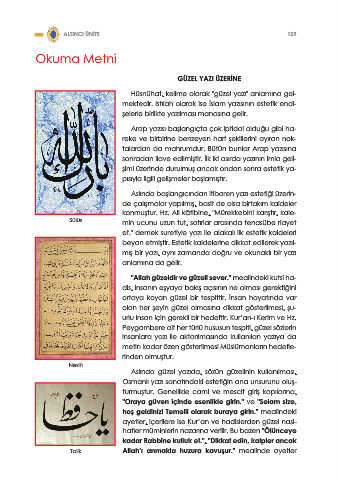 ALTINCI ÜNİTE
129
Okuma Metni
GÜZEL YAZI ÜZERİNE
Hüsnühat, kelime olarak "güzel yazı" anlamına gel-
mektedir. Istılah olarak ise İslam yazısının estetik endi-
şelerle birlikte yazılması manasına gelir.
Arap yazısı başlangıçta çok iptidai olduğu gibi ha-
reke ve birbirine benzeyen harf şekillerini ayıran nok-
talardan da mahrumdur. Bütün bunlar Arap yazısına
sonradan ilave edilmiştir. İlk iki asırda yazının imla geli-
şimi üzerinde durulmuş ancak ondan sonra estetik ya-
pısıyla ilgili gelişmeler başlamıştır.
Aslında başlangıcından itibaren yazı estetiği üzerin-
de çalışmalar yapılmış, basit de olsa birtakım kaideler
konmuştur. Hz. Ali kâtibine, "Mürekkebini karıştır, kale-
min ucunu uzun tut, satırlar arasında tenasübe riayet
et." demek suretiyle yazı ile alakalı ilk estetik kaideleri
beyan etmiştir. Estetik kaidelerine dikkat edilerek yazıl-
mış bir yazı, aynı zamanda doğru ve okunaklı bir yazı
anlamına da gelir.
"Allah güzeldir ve güzeli sever." mealindeki kutsi ha-
dis, insanın eşyaya bakış açısının ne olması gerektiğini
ortaya koyan güzel bir tespittir. İnsan hayatında var
olan her şeyin güzel olmasına dikkat gösterilmesi, şu-
urlu insan için gerekli bir hedeftir. Kur'an-ı Kerim ve Hz.
Peygambere ait her türlü hususun tespiti, güzel sözlerin
insanlara yazı ile aktarılmasında kullanılan yazıya da
metin kadar özen gösterilmesi Müslümanların hedefle-
rinden olmuştur.
Aslında güzel yazıda, sözün güzelinin kullanılması,
Osmanlı yazı sanatındaki estetiğin ana unsurunu oluş-
turmuştur. Genellikle cami ve mescit giriş kapılarına,
"Oraya güven içinde esenlikle girin." ve "Selam size,
hoş geldiniz! Temelli olarak buraya girin." mealindeki
ayetler, içerilere ise Kur'an ve hadislerden güzel nasi-
hatler müminlerin nazarına verilir. Bu bazen "Ölünceye
kadar Rabbine kulluk et.", "Dikkat edin, kalpler ancak
Allah'ı anmakla huzura kavuşur." mealinde ayetler
Sülüs
Nesih
Talik